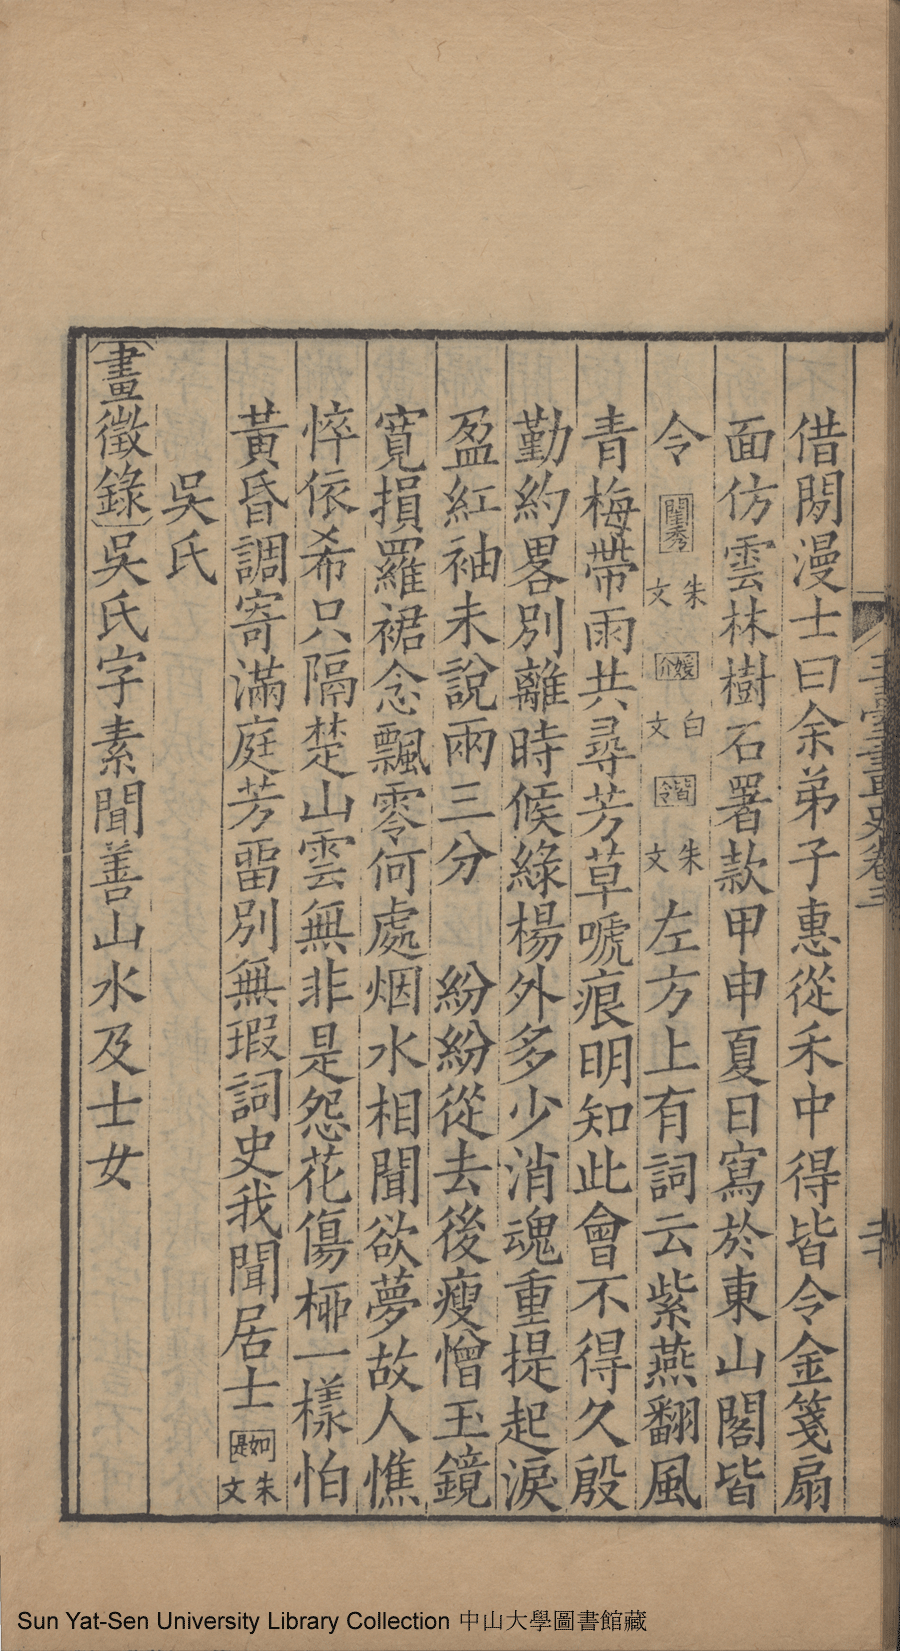 借閒漫士曰余弟子惠從禾中得皆令金箋扇
面仿雲林樹石署款甲申夏日寫於東山閣皆
令閨秀朱文媛介白文皆令朱文左方上有詞云紫燕翻風
青梅帶雨共尋芳草嗁痕明知此會不得久殷
勤約畧別離時候綠楊外多少消魂重提起淚
盈紅袖未說兩三分 紛紛從去後瘦憎玉鏡
寬損羅裙念飄零何處烟水相聞欲夢故人憔
悴依希只隔楚山雲無非是怨花傷栁一樣怕
黃昏調寄滿庭芳畱別無瑕詞史我聞居士如是朱文
吳氏
畫徵錄吳氏字素聞善山水及士女
玉臺畫史卷三
Sun Yat-Sen University Library Collection 中山大學圖書館藏